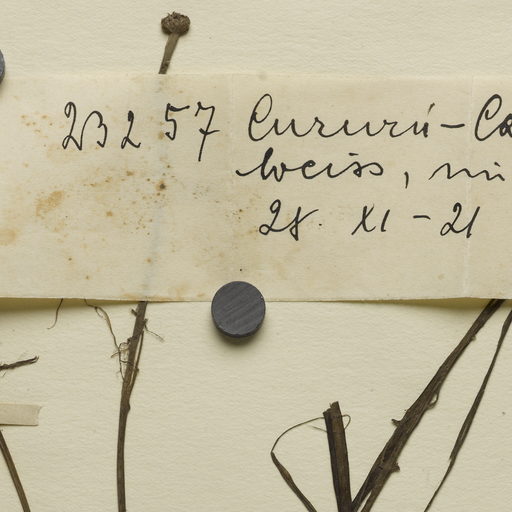 23257 Cururú-Ca
weiss, mi
28. XI-21